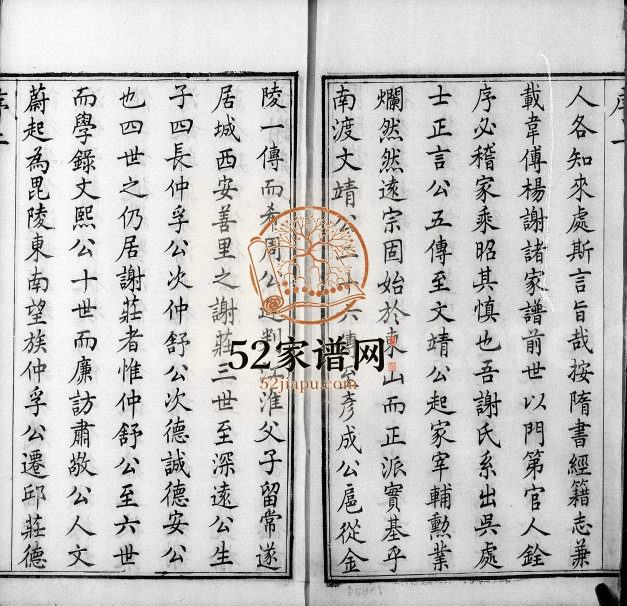 人各知來處斯言旨哉按隋書經籍志兼
載韋傅楊謝諸家譜前世以門第官人銓
序必稽家乘昭其慎也吾謝氏系出吳處
士正言公五傳至文靖公起家宰輔勲業
爛然然遠宗固始於東山而正派實基乎
南渡文靖公六傳至彥成公扈從金
陵一傳而希周公判淮父子留常遂
居城西安善里之謝莊三世至深遠公生
子四長仲孚公次仲舒公次德誠德安公
也四世之仍居謝莊者惟仲舒公至六世
而學錄文熙公十世而廉訪肅敬公人文
蔚起為毘陵東南望族仲孚公遷邱莊德
52家谱网
52jiapu.com